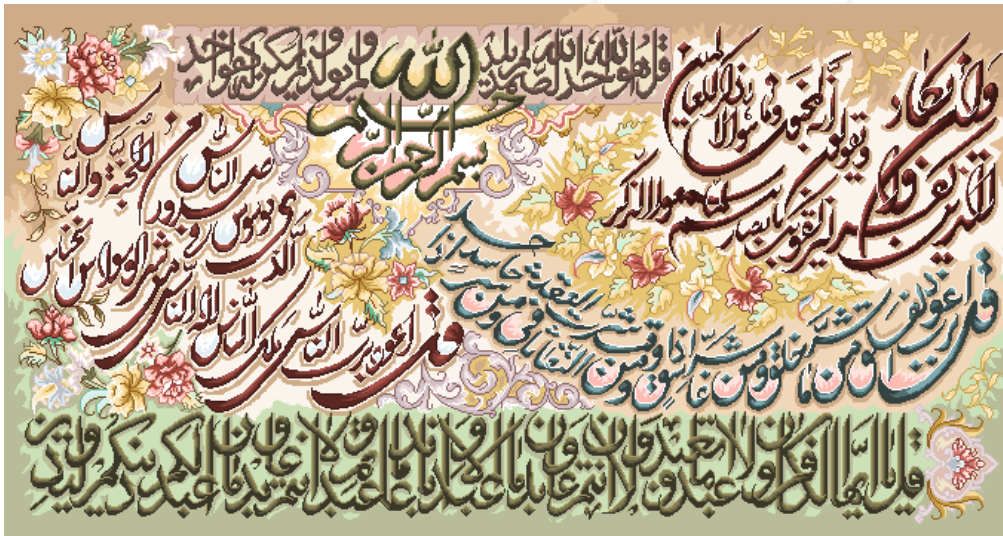 قل هو الله احد الله الصمد لم يلد ولم يولد ولم يكن له كفوا احد
بسم الله الرحمن الرحيم
وان يكاد الذين كفروا ليزلقونك بابصارهم لما سمعوا الذكر
ويقولون انه لمجنون وما هو الا ذكر للعالمين
قل اعوذ برب الفلق من شر ما خلق ومن شر غاسق اذا وقب ومن شر النفاثات فى العقد ومن شر حاسد اذا حسد
قل اعوذ برب الناس ملك الناس اله الناس من شر الوسواس الخناس الذى يوسوس فى صدور الناس من الجنة والناس
قل يا ايها الكافرون لا اعبد ما تعبدون ولا انتم عابدون ما اعبد ولا انا عابد ما عبدتم ولا انتم عابدون ما اعبد لكم دينكم ولى دين